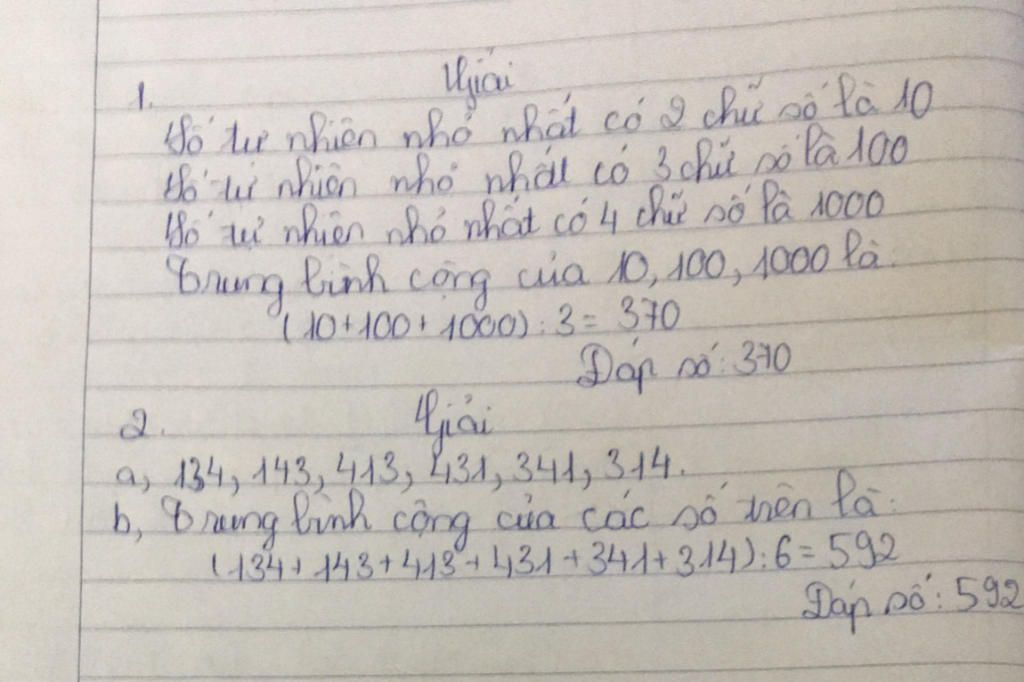 1. Giải
Số tự nhiên nhỏ nhất có 2 chữ số là 10
Số tự nhiên nhỏ nhất có 3 chữ số là 100
Số tự nhiên nhỏ nhất có 4 chữ số là 1000
Trung bình cộng của 10, 100, 1000 là:
(10+100+1000) : 3 = 370
Đáp số: 370
2. Giải
a, 134, 143, 413, 431, 341, 314.
b, Trung bình cộng của các số trên là:
(134+143+413+431+341+314) : 6 = 592
Đáp số: 592